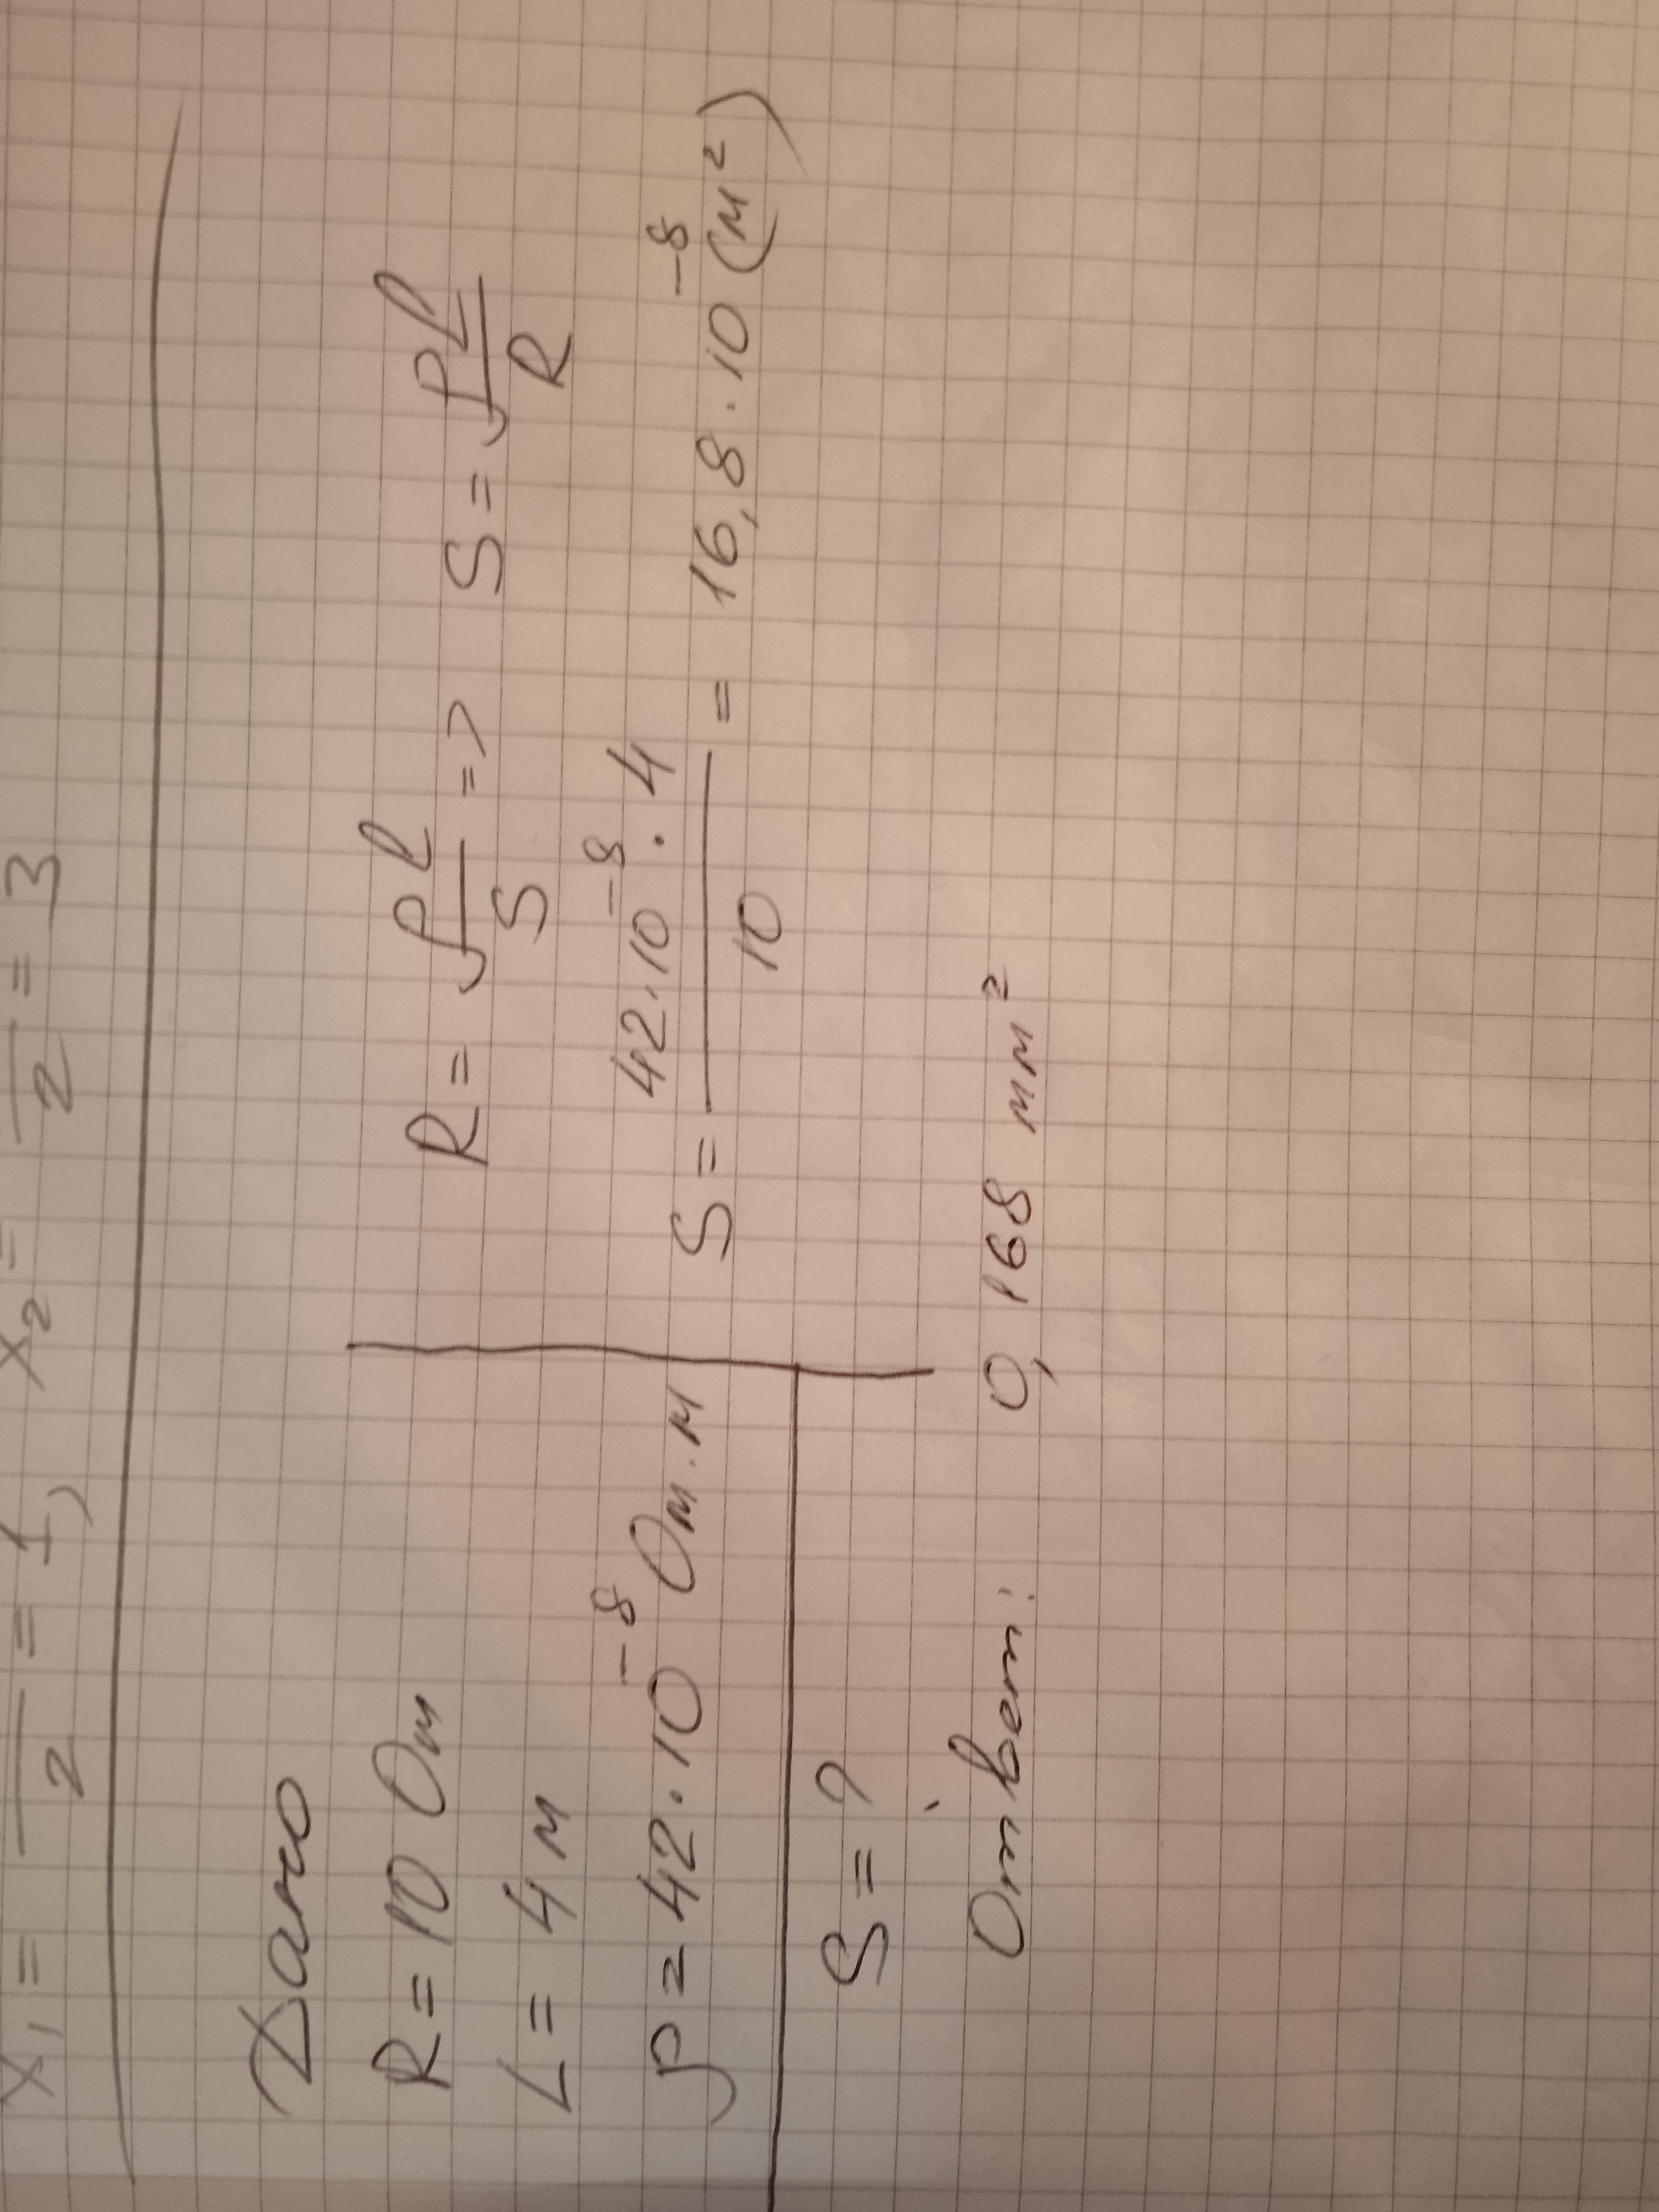 x₁ = — / 2 = 1, x₂ = — / 2 = 3
Дано
R = 10 Ом
L = 4 м
ρ = 42 · 10⁻⁸ Ом·м
S = ?
R = ρL / S => S = ρL / R
S = 42·10⁻⁸ · 4 / 10 = 16,8 · 10⁻⁸ (м²)
Ответ: 0,168 мм²